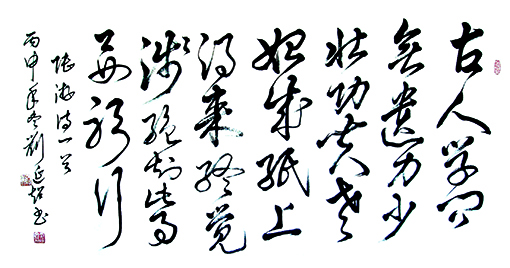 古人学问
無遺力少
壮功夫老
始成紙上
得来终觉
浅绝知此事
要躬行
陆游诗一首
丙申年冬刘延超书